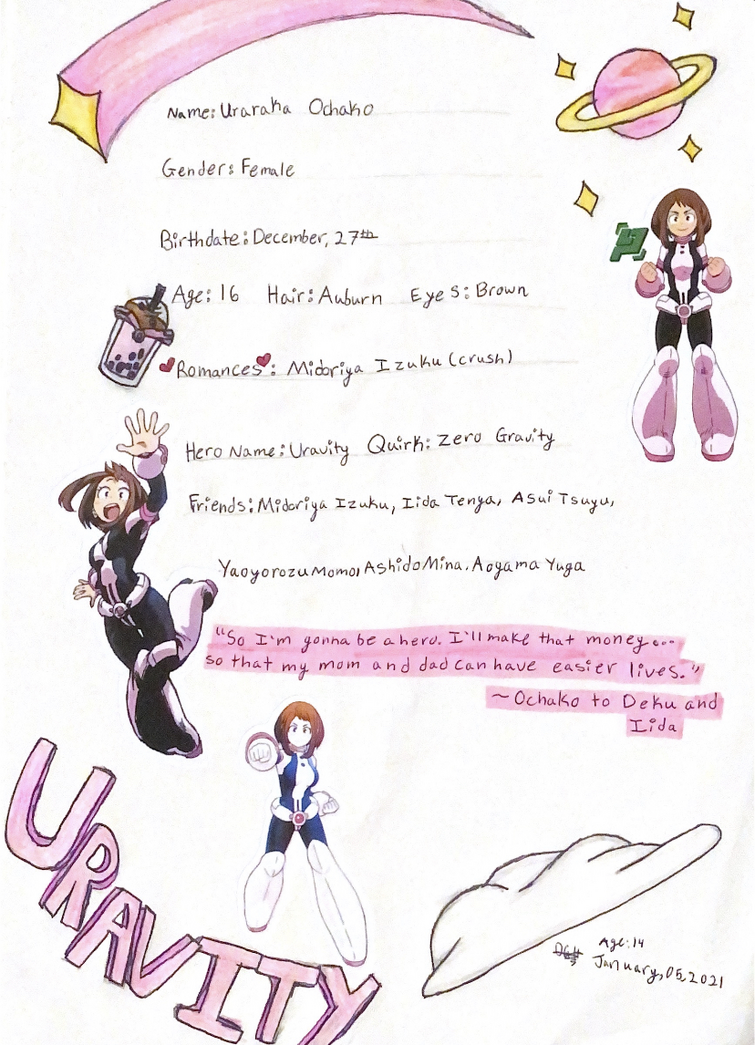 Name: Uraraka Ochako
Gender: Female
Birthdate: December, 27th
Age: 16 Hair: Auburn Eyes: Brown
Romances: Midoriya Izuku (crush)
Hero Name: Uravity Quirk: Zero Gravity
Friends: Midoriya Izuku, Iida Tenya, Asui Tsuyu,
Yaoyorozu Momo, Ashido Mina, Aoyama Yuga
"So I'm gonna be a hero. I'll make that money...
so that my mom and dad can have easier lives."
~Ochako to Deku and
Iida
URAVITY
Age: 14
January, 05, 2021